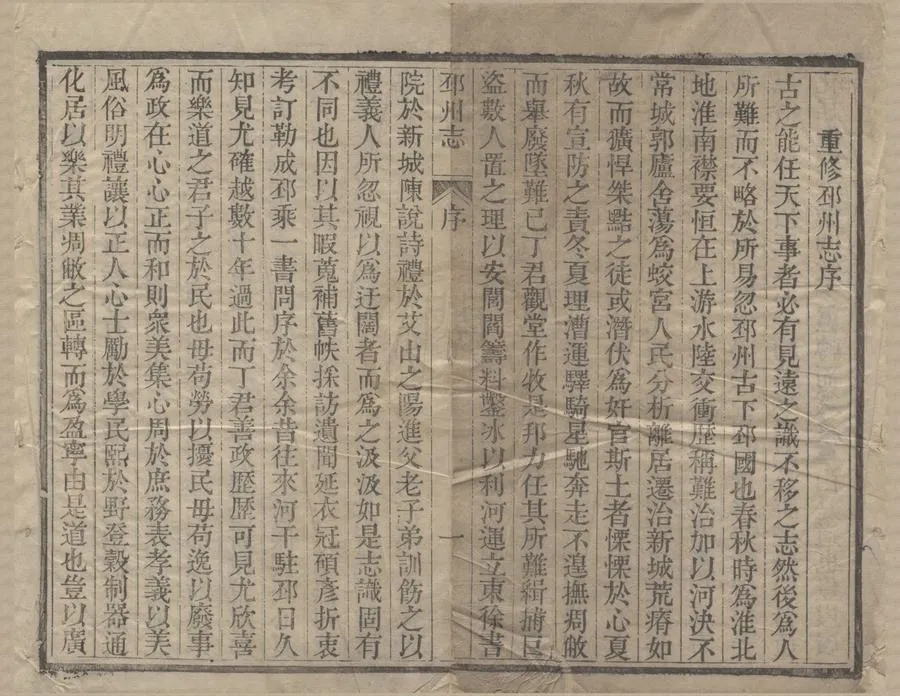 重修邳州志序
古之能任天下事者必有見遠之識不移之志然後爲人
所難而不略於所易忽邳州古下邳國也春秋時爲淮北
地淮南襟要恒在上游水陸交衝歷稱難治加以河決不
常城郭廬舍蕩爲蛟宮人民分析離居遷治新城荒瘠如
故而獷悍桀黠之徒或潛伏爲奸官斯土者慄慄於心夏
秋有宣防之責冬夏理漕運驛騎星馳奔走不遑撫凋敝
而舉廢墜難已丁君觀堂作牧是邦力任其所難緝捕巨
盜數人置之理以安閭閻籌料鑿冰以利河運立東徐書
邳州志
序
一
院於新城陳說詩禮於艾山之陽進父老子弟訓飭之以
禮義人所忽視以爲迂闊者而爲之汲汲如是志識固有
不同也因以其暇蒐補舊帙採訪遺聞延衣冠碩彥折衷
考訂勒成邳乘一書問序於余余昔往來河干駐邳日久
知見尤確越數十年過此而丁君善政歷歷可見尤欣喜
而樂道之君子之於民也毋苟勞以擾民毋苟逸以廢事
爲政在心心正而和則衆美集心周於庶務表孝義以美
風俗明禮讓以正人心士勵於學民熙於野登穀制器通
化居以樂其業凋敝之區轉而爲盈寧由是道也豈以廣